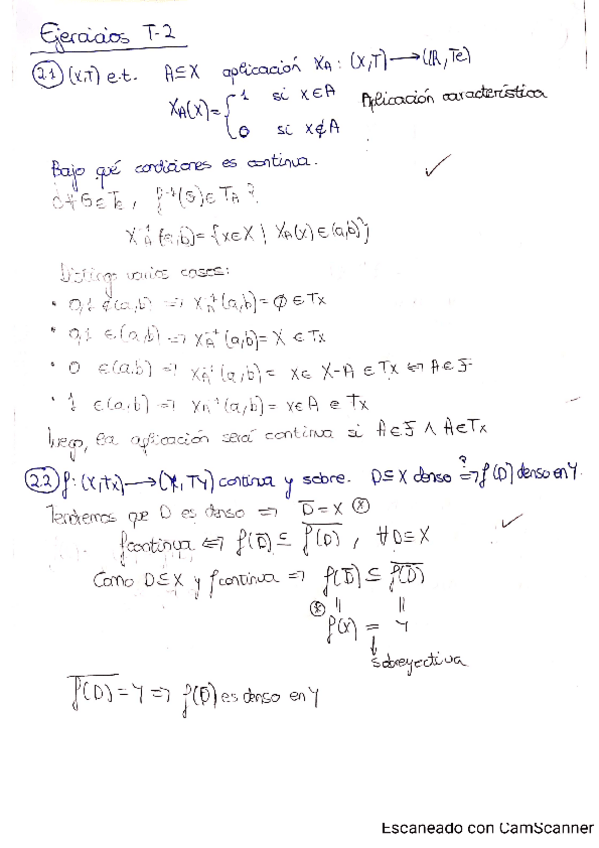 Ejercicios T-2
2.1 (X,T) e.t. A⊆X aplicación χ_A: (X,T) → (ℝ,Te)
χ_A(x) = { 1 si x∈A Aplicación característica
0 si x∉A
Bajo qué condiciones es continua.
G∈Te, f⁻¹(G)∈T_A?
χ_A⁻¹(a,b) = {x∈X | χ_A(x)∈(a,b)}
Distingo varios casos:
• 0,1 ∉(a,b) => χ_A⁻¹(a,b) = ∅ ∈ Tx
• 0,1 ∈(a,b) => χ_A⁻¹(a,b) = X ∈ Tx
• 0 ∈(a,b) => χ_A⁻¹(a,b) = x∈ X-A ∈ Tx <=> A∈F
• 1 ∈(a,b) => χ_A⁻¹(a,b) = x∈A ∈ Tx
luego, la aplicación será continua si A∈F ∧ A∈Tx
2.2 f: (X,Tx) → (Y,Ty) continua y sobre. D⊆X denso ?=> f(D) denso en Y.
Tendremos que D es denso => D̅ = X (*)
f continua <=> f(D̅) ⊆ \overline{f(D)}, ∀D⊆X
Como D⊆X y f continua => f(D̅) ⊆ \overline{f(D)}
(*) || ||
f(X) = Y
↓
sobreyectiva
\overline{f(D)} = Y => f(D) es denso en Y
Escaneado con CamScanner